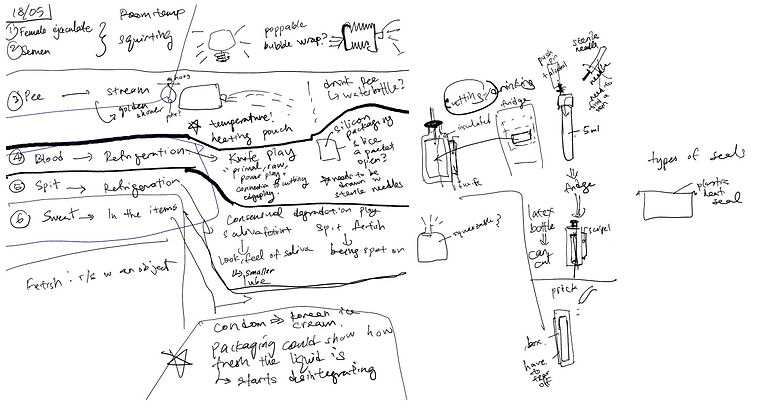 18/05
① Female ejaculate
② Semen
Room temp
squirting
poppable
bubble wrap?
③ Pee → stream
↳ golden
shower
☆ temperature!
heating pouch
drink pee
↳ waterbottle?
④ Blood → Refrigeration → Knife play
"primal, raw,
power play,
connection to cutting
edgeplay
silicon
packaging
slice
a packet
open?
needs to be
drawn w
sterile needles
⑤ Spit → Refrigeration
⑥ Sweat → In the items
Consensual degradation play
Spit fetish
Look, feel of saliva
↳ smaller
tube
being spat on
Fetish : r/s w an object
condom → korean ice
cream.
packaging could show how
fresh the liquid is
↳ starts disintegrating
cutting
drinking
fridge
insulated
knife
squeezable?
push
pin
+
sterile
needle
needle
need to
find a
5ml
fridge
latex
bottle
can
cut
scalpel
prick
box.
have
to
off
types of seals
plastic
heat
seal